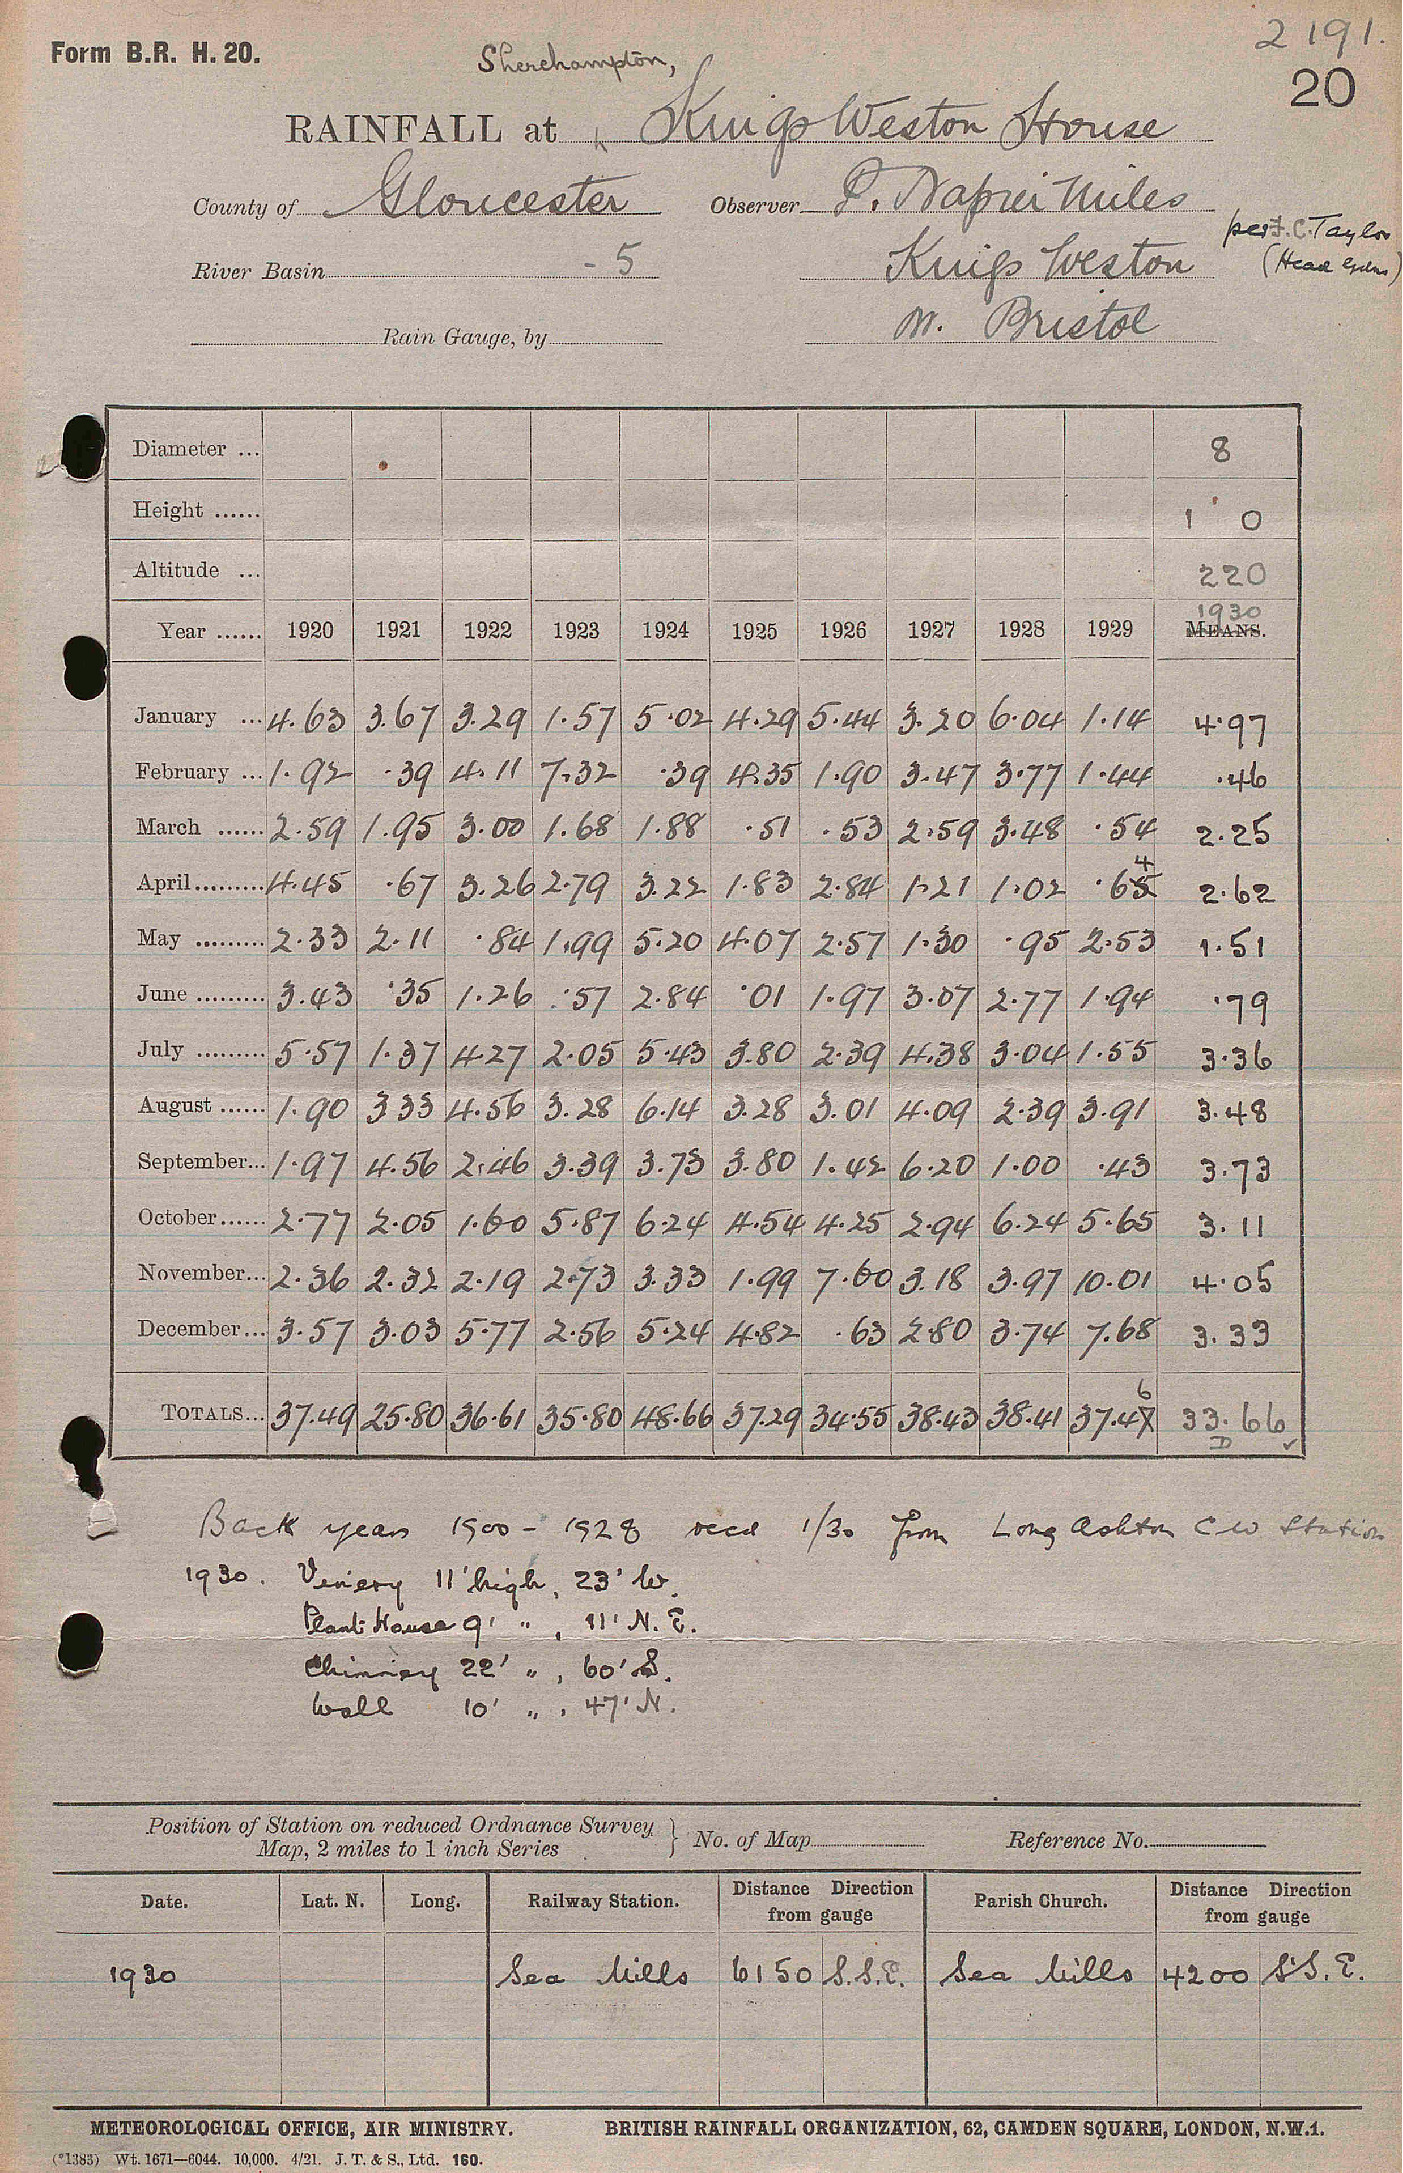 2191.
Form B.R. H. 20.
20
Shirehampton,
RAINFALL at Kings Weston House
County of Gloucester Observer P. Napier Miles
per F. C. Taylor
River Basin - 5 Kings Weston
(Head Gdnr)
Rain Gauge, by nr. Bristol
Diameter ... 8
Height ...... 1' 0
Altitude ... 220
1930
Year ...... 1920 1921 1922 1923 1924 1925 1926 1927 1928 1929 MEANS.
January ... 4.63 3.67 3.29 1.57 5.02 4.29 5.44 3.20 6.04 1.14 4.97
February ... 1.92 .39 4.11 7.32 .39 4.35 1.90 3.47 3.77 1.44 .46
March ...... 2.59 1.95 3.00 1.68 1.88 .51 .53 2.59 3.48 .54 2.25
4
April......... 4.45 .67 3.26 2.79 3.22 1.83 2.84 1.21 1.02 .65 2.62
May ......... 2.33 2.11 .84 1.99 5.20 4.07 2.57 1.30 .95 2.53 1.51
June ......... 3.43 .35 1.26 .57 2.84 .01 1.97 3.07 2.77 1.94 .79
July ......... 5.57 1.37 4.27 2.05 5.43 3.80 2.39 4.38 3.04 1.55 3.36
August ...... 1.90 3 33 4.56 3.28 6.14 3.28 3.01 4.09 2.39 3.91 3.48
September... 1.97 4.56 2.46 3.39 3.73 3.80 1.42 6.20 1.00 .43 3.73
October...... 2.77 2.05 1.60 5.87 6.24 4.54 4.25 2.94 6.24 5.65 3.11
November... 2.36 2.32 2.19 2.73 3.33 1.99 7.60 3.18 3.97 10.01 4.05
December... 3.57 3.03 5.77 2.56 5.24 4.82 .63 2.80 3.74 7.68 3.33
6
TOTALS... 37.49 25.80 36.61 35.80 48.66 37.29 34.55 38.43 38.41 37.47 33.66
D ✓
Back years 1900 - 1928 recd 1/30 from Long Ashton C W Station
1930. Vinery 11' high, 23' W.
Plant House 9' " , 11' N. E.
Chimney 22' " , 60' S.
Wall 10' " , 47' N.
Position of Station on reduced Ordnance Survey
Map, 2 miles to 1 inch Series } No. of Map Reference No.
Date. Lat. N. Long. Railway Station. Distance Direction from gauge Parish Church. Distance Direction from gauge
1930 Sea Mills 6150 S.S.E. Sea Mills 4200 S.S.E.
METEOROLOGICAL OFFICE, AIR MINISTRY. BRITISH RAINFALL ORGANIZATION, 62, CAMDEN SQUARE, LONDON, N.W.1.
(*1383) Wt. 1671—6044. 10,000. 4/21. J. T. & S., Ltd. 160.